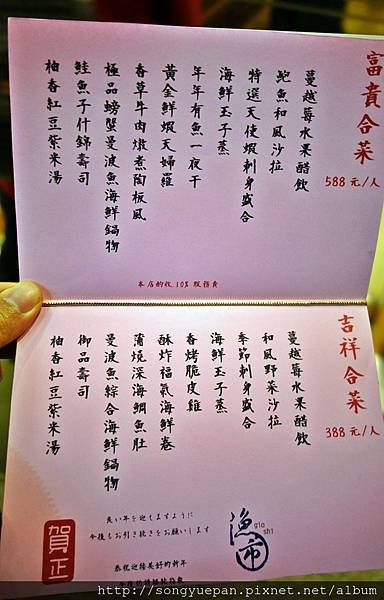 富貴合菜
588 元/人
蔓越莓水果醋飲
鮑魚和風沙拉
特選天使蝦刺身盛合
海鮮玉子蒸
年年有魚一夜干
黃金鮮蝦天婦羅
香草牛肉燉煮陶板風
極品螃蟹曼波魚海鮮鍋物
鮭魚子什錦壽司
柚香紅豆紫米湯
本店酌收 10% 服務費
吉祥合菜
388 元/人
蔓越莓水果醋飲
和風野菜沙拉
季節刺身盛合
海鮮玉子蒸
香烤脆皮雞
酥炸福氣海鮮卷
蒲燒深海鯛魚肚
曼波魚綜合海鮮鍋物
御品壽司
柚香紅豆紫米湯
良い年を迎えますように
今後もお引き続きをお願いします
恭祝迎接美好的新年
賀正
漁市
gio shi
http://songyuepan.pixnet.net/album